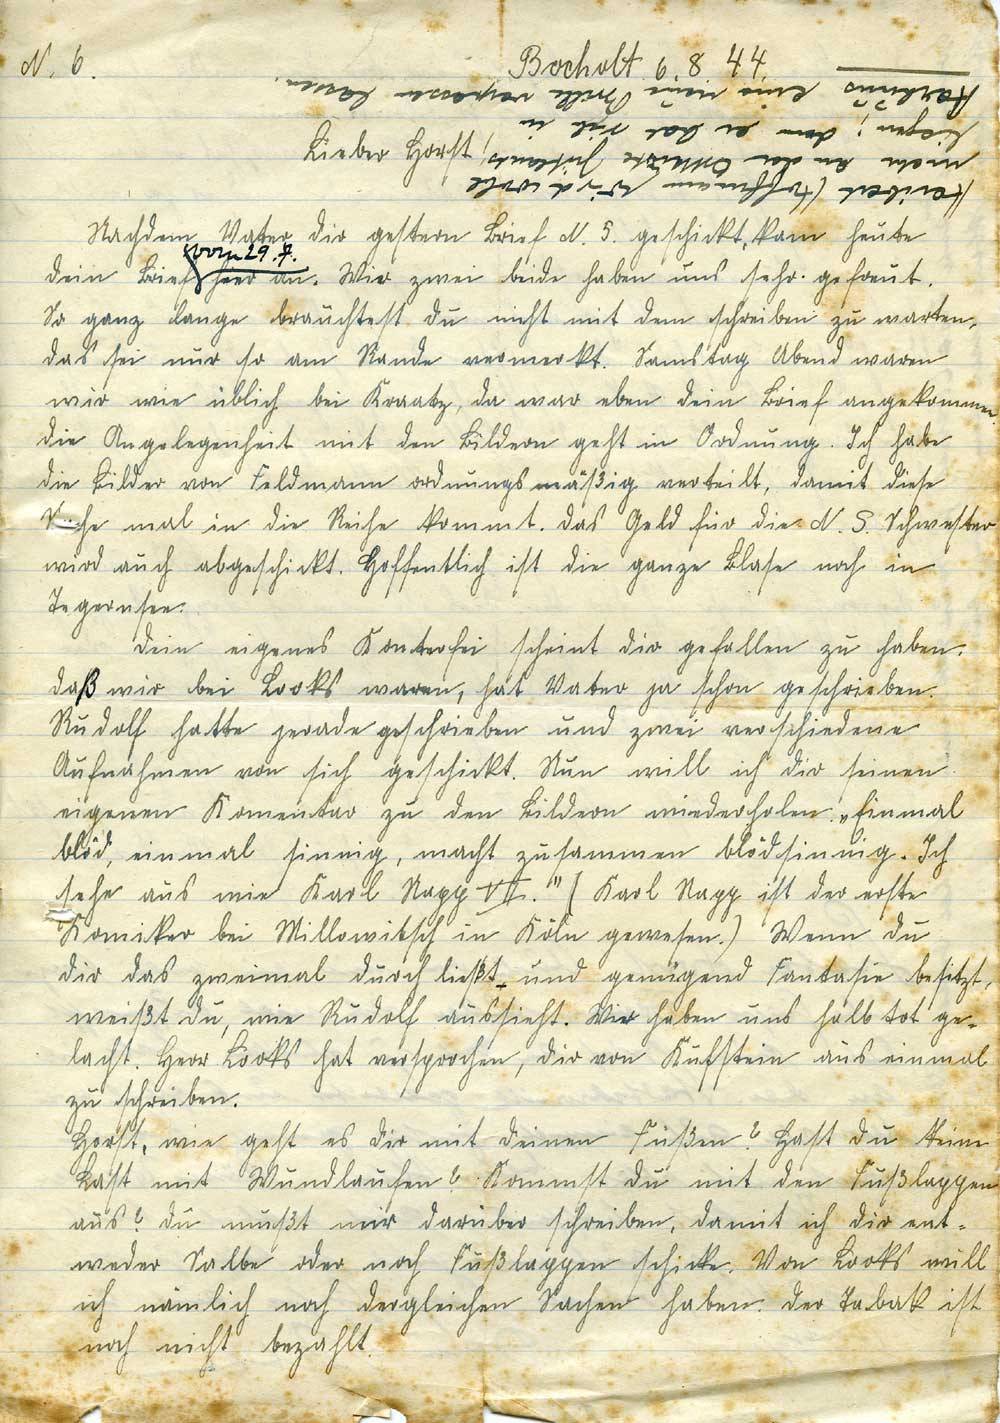 N. 6.
Bocholt 6. 8. 44.
Heribert Hoffmann wird wohl
mehr an der Ostküste
liegen; denn er hat sich in
eine neue Brille verpassen lassen.
Lieber Horst,
Nachdem Vater dir gestern Brief N. 5. geschickt, kam heute
vom 29. 7.
dein Brief hier an. Wir zwei beide haben uns sehr gefreut.
So ganz lange bräuchtest du nicht mit dem schreiben zu warten,
das sei nur so am Rande vermerkt. Samstag Abend waren
wir wie üblich bei Kraatz, da war eben dein Brief angekommen.
die Angelegenheit mit den Bildern geht in Ordnung. Ich habe
die Bilder von Feldmann ordnungsmäßig verteilt, damit diese
mal in die Reihe kommt. das Geld für die N. S. Schwester
wird auch abgeschickt. Hoffentlich ist die ganze Blase noch in
Tegernsee.
dein eigenes Konterfei scheint dir gefallen zu haben.
daß wir bei Looks waren, hat Vater ja schon geschrieben.
Rudolf hatte gerade geschrieben und zwei verschiedene
Aufnahmen von sich geschickt. Nun will ich dir seinen
eigenen Komentar zu den Bildern wiederholen: „Einmal
blöd, einmal sinnig, macht zusammen blödsinnig. Ich
sehe aus wie Karl Napp VII." ( Karl Napp ist der erste
Komiker bei Millowitsch in Köln gewesen.) Wenn du
dir das zweimal durch ließt und genügend Fantasie besitzt,
weißt du, wie Rudolf aussieht. Wir haben uns halb tot ge-
lacht. Herr Looks hat versprochen, dir von Kufstein aus einmal
zu schreiben.
Horst, wie geht es dir mit deinen Füßen? Hast du keine
Last mit Wundlaufen? Kommst du mit den Fußlappen
aus? du mußt mir darüber schreiben, damit ich dir ent-
weder Salbe oder noch Fußlappen schicke. Von Looks will
ich nämlich noch dergleichen Sachen haben. der Tabak ist
noch nicht bezahlt.